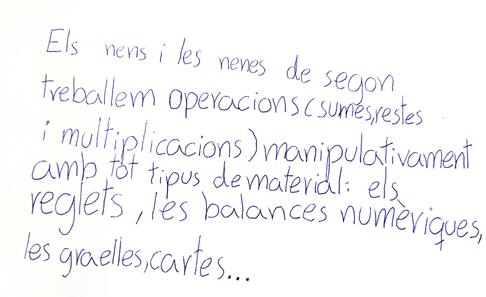 Els nens i les nenes de segon
treballem operacions (sumes,restes
i multiplicacions) manipulativament
amb tot tipus de material: els
reglets, les balances numèriques,
les graelles, cartes...